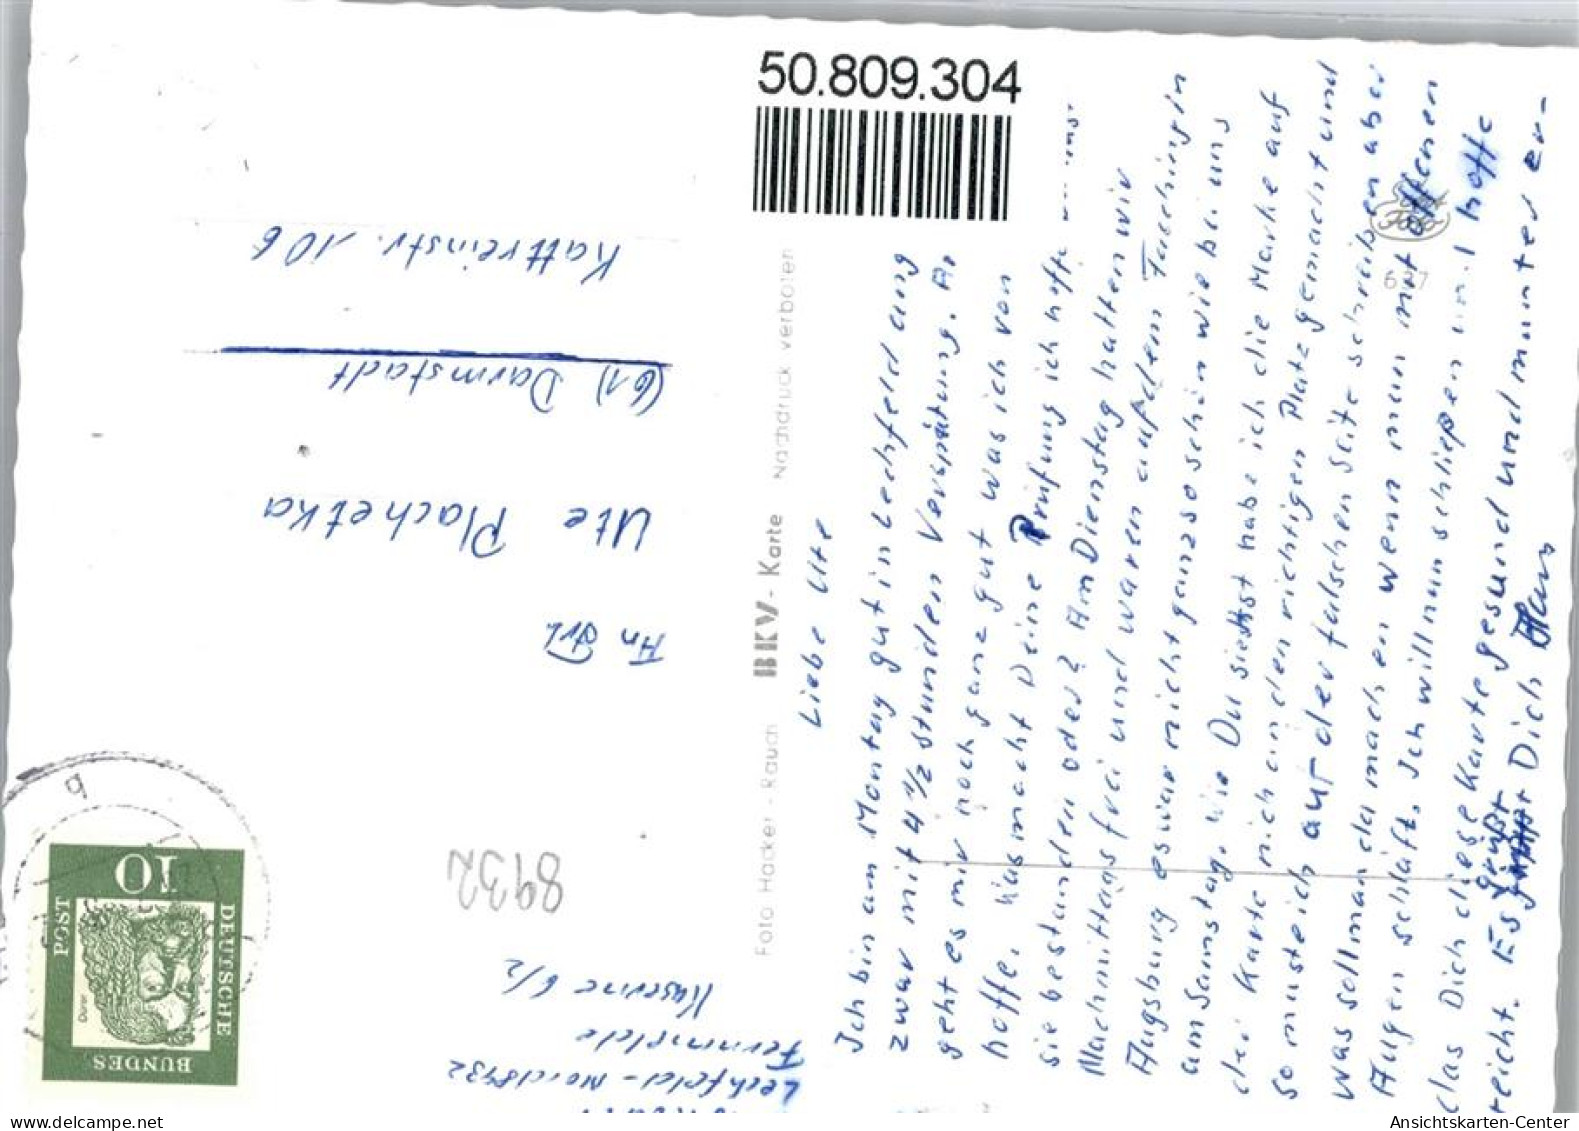 50.809.304
Liebe Ute
Ich bin am Montag gut in Lechfeld ang
zwar mit 4 1/2 Stunden Verspätung.
geht es mir noch ganz gut was ich von
hoffe. Was macht Deine Prüfung ich hoffe
sie bestanden oder? Am Dienstag hatten wir
Nachmittags frei und waren auf dem Fasching in
Augsburg es war nicht ganz so schön wie bei uns
am Samstag. Wie Du siehst habe ich die Marke auf
der Karte nicht an den richtigen Platz gemacht und
so musste ich auf der falschen Seite schreiben aber
was soll man da machen wenn man mit offenen
Augen schläft. Ich will nun schließen und hoffe
das Dich diese Karte gesund und munter er-
reicht. Es grüßt Dich Hans
Foto Hacker - Rauch BKV - Karte Nachdruck verboten
637
An Frl.
Ute Plachetka
(61) Darmstadt
Kattreinstr. 106
Lechfeld-Nord 8932
Fernmelde
Kaserne 6/2
8932
DEUTSCHE
BUNDES
POST
10
Dürer
AnsichtsKarten-Center